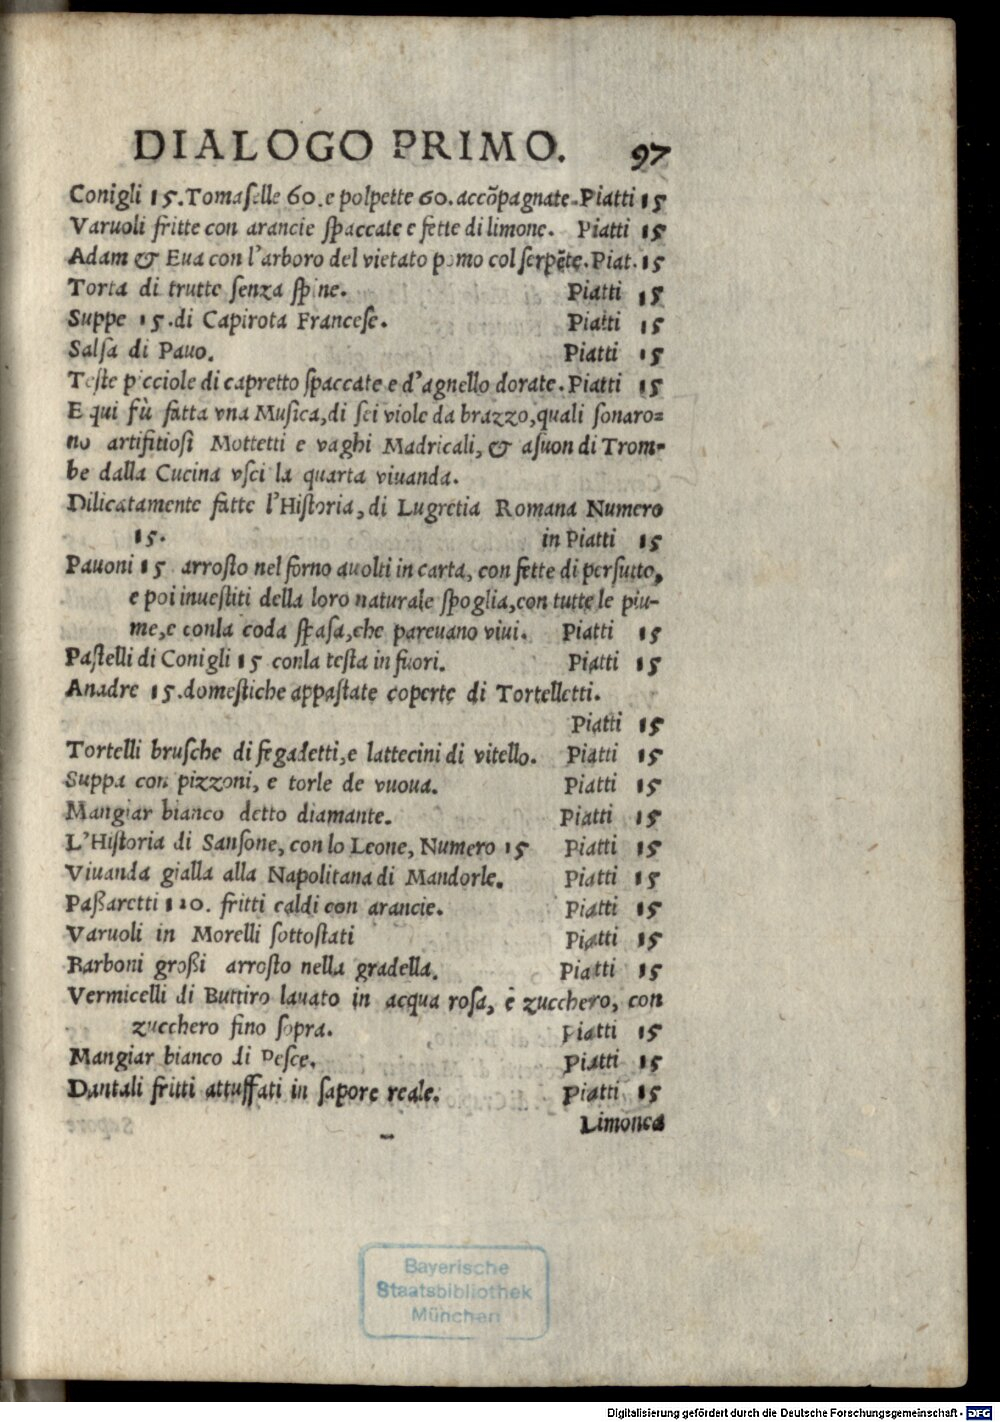 DIALOGO PRIMO. 97
Conigli 15. Tomaſelle 60. e polpette 60. accõpagnate. Piatti 15
Varuoli fritte con arancie ſpaccate e fette di limone. Piatti 15
Adam & Eua con l'arboro del vietato pomo col ſerpẽte. Piat. 15
Torta di trutte ſenza ſpine. Piatti 15
Suppe 15. di Capirota Franceſe. Piatti 15
Salſa di Pauo. Piatti 15
Teſte picciole di capretto ſpaccate e d'agnello dorate. Piatti 15
E qui fù fatta vna Muſica, di ſei viole da brazzo, quali ſonaro=
no artifitioſi Mottetti e vaghi Madricali, & aſuon di Trom-
be dalla Cucina vſci la quarta viuanda.
Dilicatamente fatte l'Hiſtoria, di Lugretia Romana Numero
15. in Piatti 15
Pauoni 15 arroſto nel forno auolti in carta, con fette di perſutto,
e poi inueſtiti della loro naturale ſpoglia, con tutte le piu-
me, e conla coda ſpaſa, che pareuano viui. Piatti 15
Paſtelli di Conigli 15 conla teſta in fuori. Piatti 15
Anadre 15. domeſtiche appaſtate coperte di Tortelletti.
Piatti 15
Tortelli bruſche di fegadetti, e lattecini di vitello. Piatti 15
Suppa con pizzoni, e torle de vuoua. Piatti 15
Mangiar bianco detto diamante. Piatti 15
L'Hiſtoria di Sanſone, con lo Leone, Numero 15 Piatti 15
Viuanda gialla alla Napolitana di Mandorle. Piatti 15
Paßaretti 120. fritti caldi con arancie. Piatti 15
Varuoli in Morelli ſottoſtati Piatti 15
Barboni großi arroſto nella gradella. Piatti 15
Vermicelli di Buttiro lauato in acqua roſa, è zucchero, con
zucchero fino ſopra. Piatti 15
Mangiar bianco di Peſce. Piatti 15
Dantali fritti attuffati in ſapore reale. Piatti 15
Limonea
Bayerische
Staatsbibliothek
München
Digitalisierung gefördert durch die Deutsche Forschungsgemeinschaft - DFG